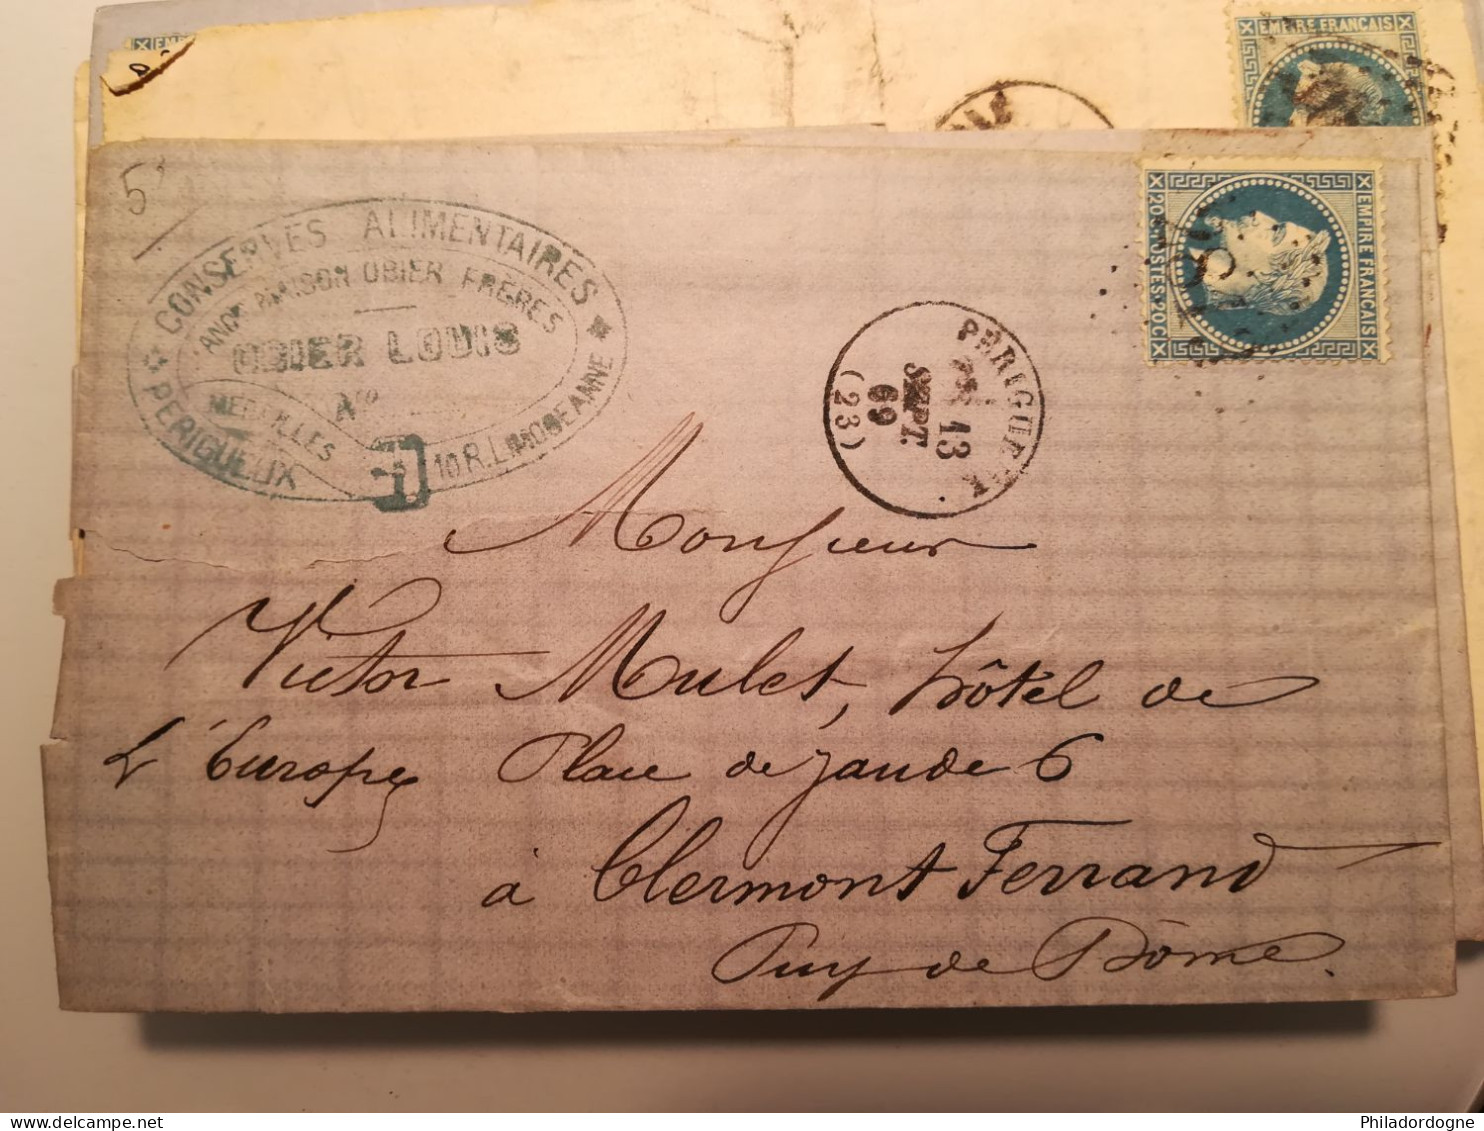 EMPIRE FRANÇAIS
5
CONSERVES ALIMENTAIRES
ANCNE MAISON OBIER FRÈRES
OBIER LOUIS
MEDAILLES
PERIGUEUX
10 R. LIMOGEANNE
PERIGUEUX
13
SEPT.
69
(23)
EMPIRE FRANÇAIS
20C POSTES 20C
Monsieur
Victor Mulet, hôtel de
L'Europe Place de jaude 6
à Clermont Ferrand
Puy de Dôme.
delcampe.net
Philadordogne